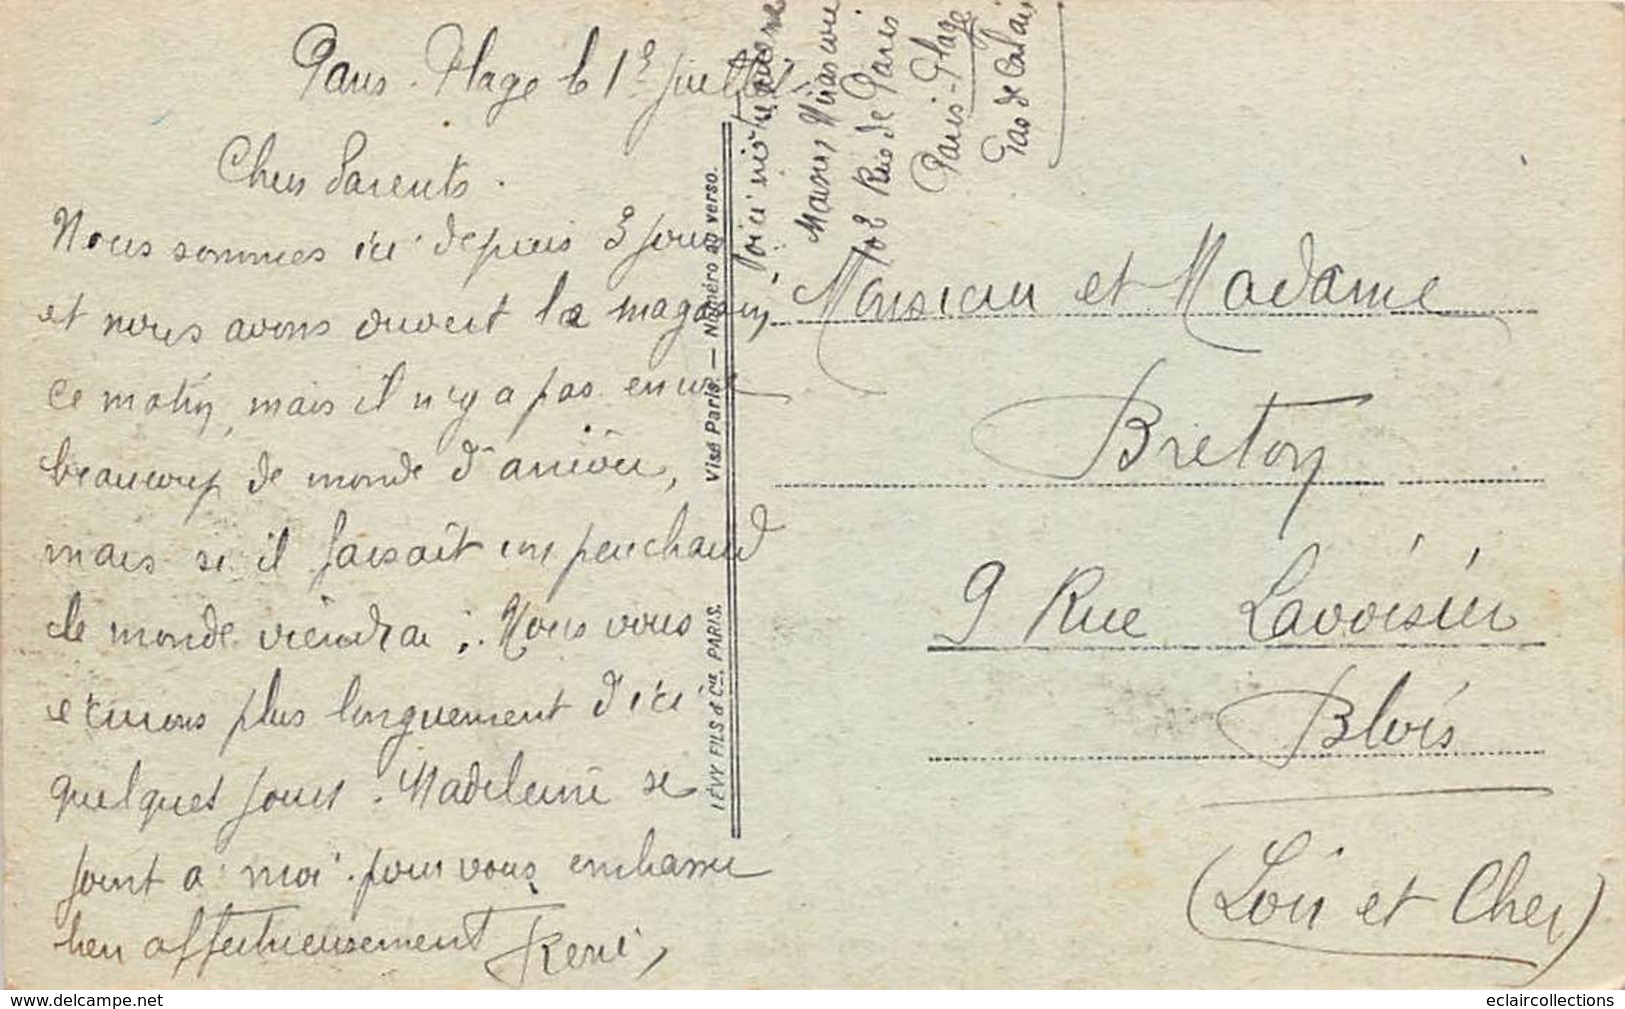 Paris-Plage le 1er juillet
Chers Parents.
Nous sommes ici depuis 3 jours
et nous avons ouvert le magasin
ce matin, mais il n'y a pas encore
beaucoup de monde d'arrivée,
mais si il faisait un peu chaud
le monde viendrai. Nous vous
écrirons plus longuement d'ici
quelques jours. Madeleine se
joint a moi pour vous embrasser
bien affectueusement René,
Voici notre adresse
Maison
102 Rue de Paris
Paris-Plage
Pas de Calais
LÉVY FILS & Cie. PARIS. Visé Paris. — Numéro au verso.
Monsieur et Madame
Breton
9 Rue Lavoisier
Blois
(Loir et Cher)
www.delcampe.net
eclaircollections